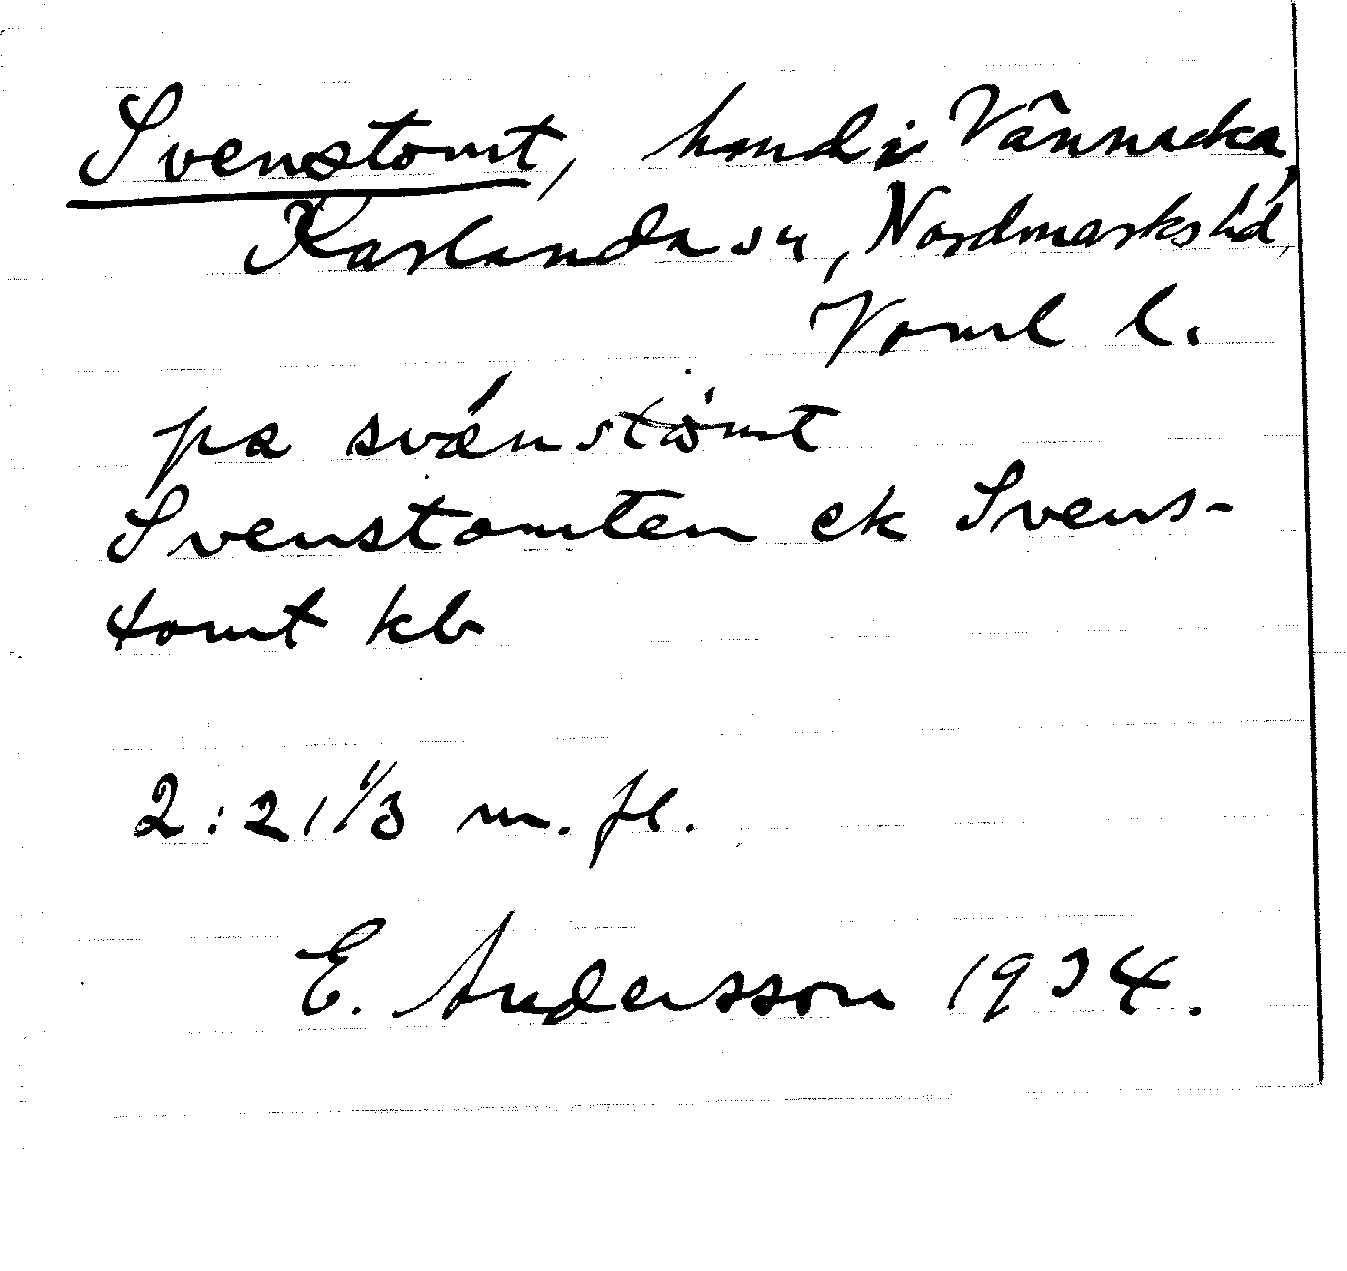 Svenstomt, hmd i Vännacka,
Karlanda sn, Nordmarks hd,
Värml l.
pa svänstömt
Svenstomten ek Svens-
tomt kb
2:21 1/3 m. fl.
E. Andersson 1934.